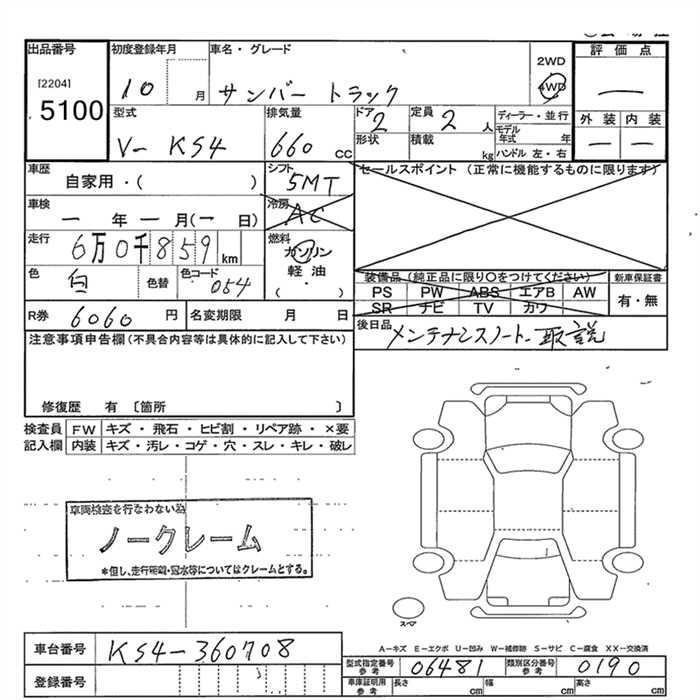 出品番号 初度登録年月 車名・グレード 2WD 評価点
[2204] 10 月 サンバー トラック 4WD —
5100 型式 排気量 ドア 2 定員 2 人 ディーラー・並行 外装 内装
V- KS4 660 cc 形状 積載 kg モデル年式 年 — —
ハンドル 左・右
車歴 自家用・( ) シフト 5MT セールスポイント (正常に機能するものに限ります)
車検 — 年 — 月(— 日) 冷房 AC
走行 6万0千859km 燃料 ガソリン
色 白 色替 色コード 054 軽油
( ・ )
装備品(純正品に限り○をつけてください) 新車保証書
PS PW ABS エアB AW 有・無
SR ナビ TV カワ
R券 6060 円 名変期限 月 日 後日品 メンテナンスノート、取説
注意事項申告欄(不具合内容等は具体的に記入して下さい)
修復歴 有 〔箇所 〕
検査員 FW キズ・飛石・ヒビ割・リペア跡・×要
記入欄 内装 キズ・汚レ・コゲ・穴・スレ・キレ・破レ
車両検査を行なわない為
ノークレーム
*但し、走行距離・冠水等についてはクレームとする。
スペア
A-キズ E-エクボ U-凹み W-補修跡 S-サビ C-腐食 XX-交換済
車台番号 KS4-360708
型式指定番号 参考 06481 類別区分番号 参考 0190
登録番号 車庫証明用 参考 長さ cm 幅 cm 高さ cm